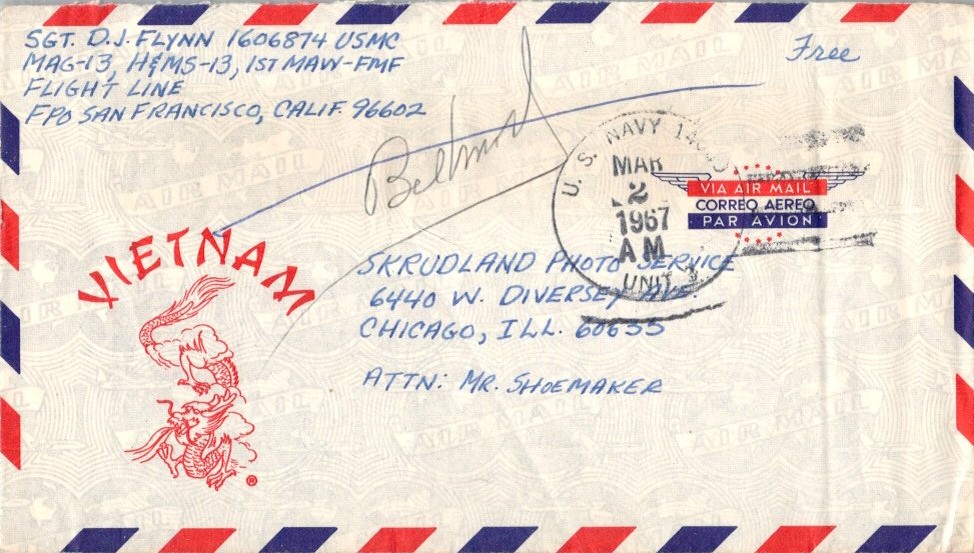 SGT. D.J. FLYNN 1606874 USMC
MAG-13, H&MS-13, 1ST MAW-FMF
FLIGHT LINE
FPO SAN FRANCISCO, CALIF. 96602
Free
U.S. NAVY
MAR
2
1967
A.M.
UNIT 3
VIA AIR MAIL
CORREO AEREO
PAR AVION
VIETNAM
®
SKRUDLAND PHOTO SERVICE
6440 W. DIVERSEY AVE.
CHICAGO, ILL. 60635
ATTN: MR. SHOEMAKER
AIR MAIL